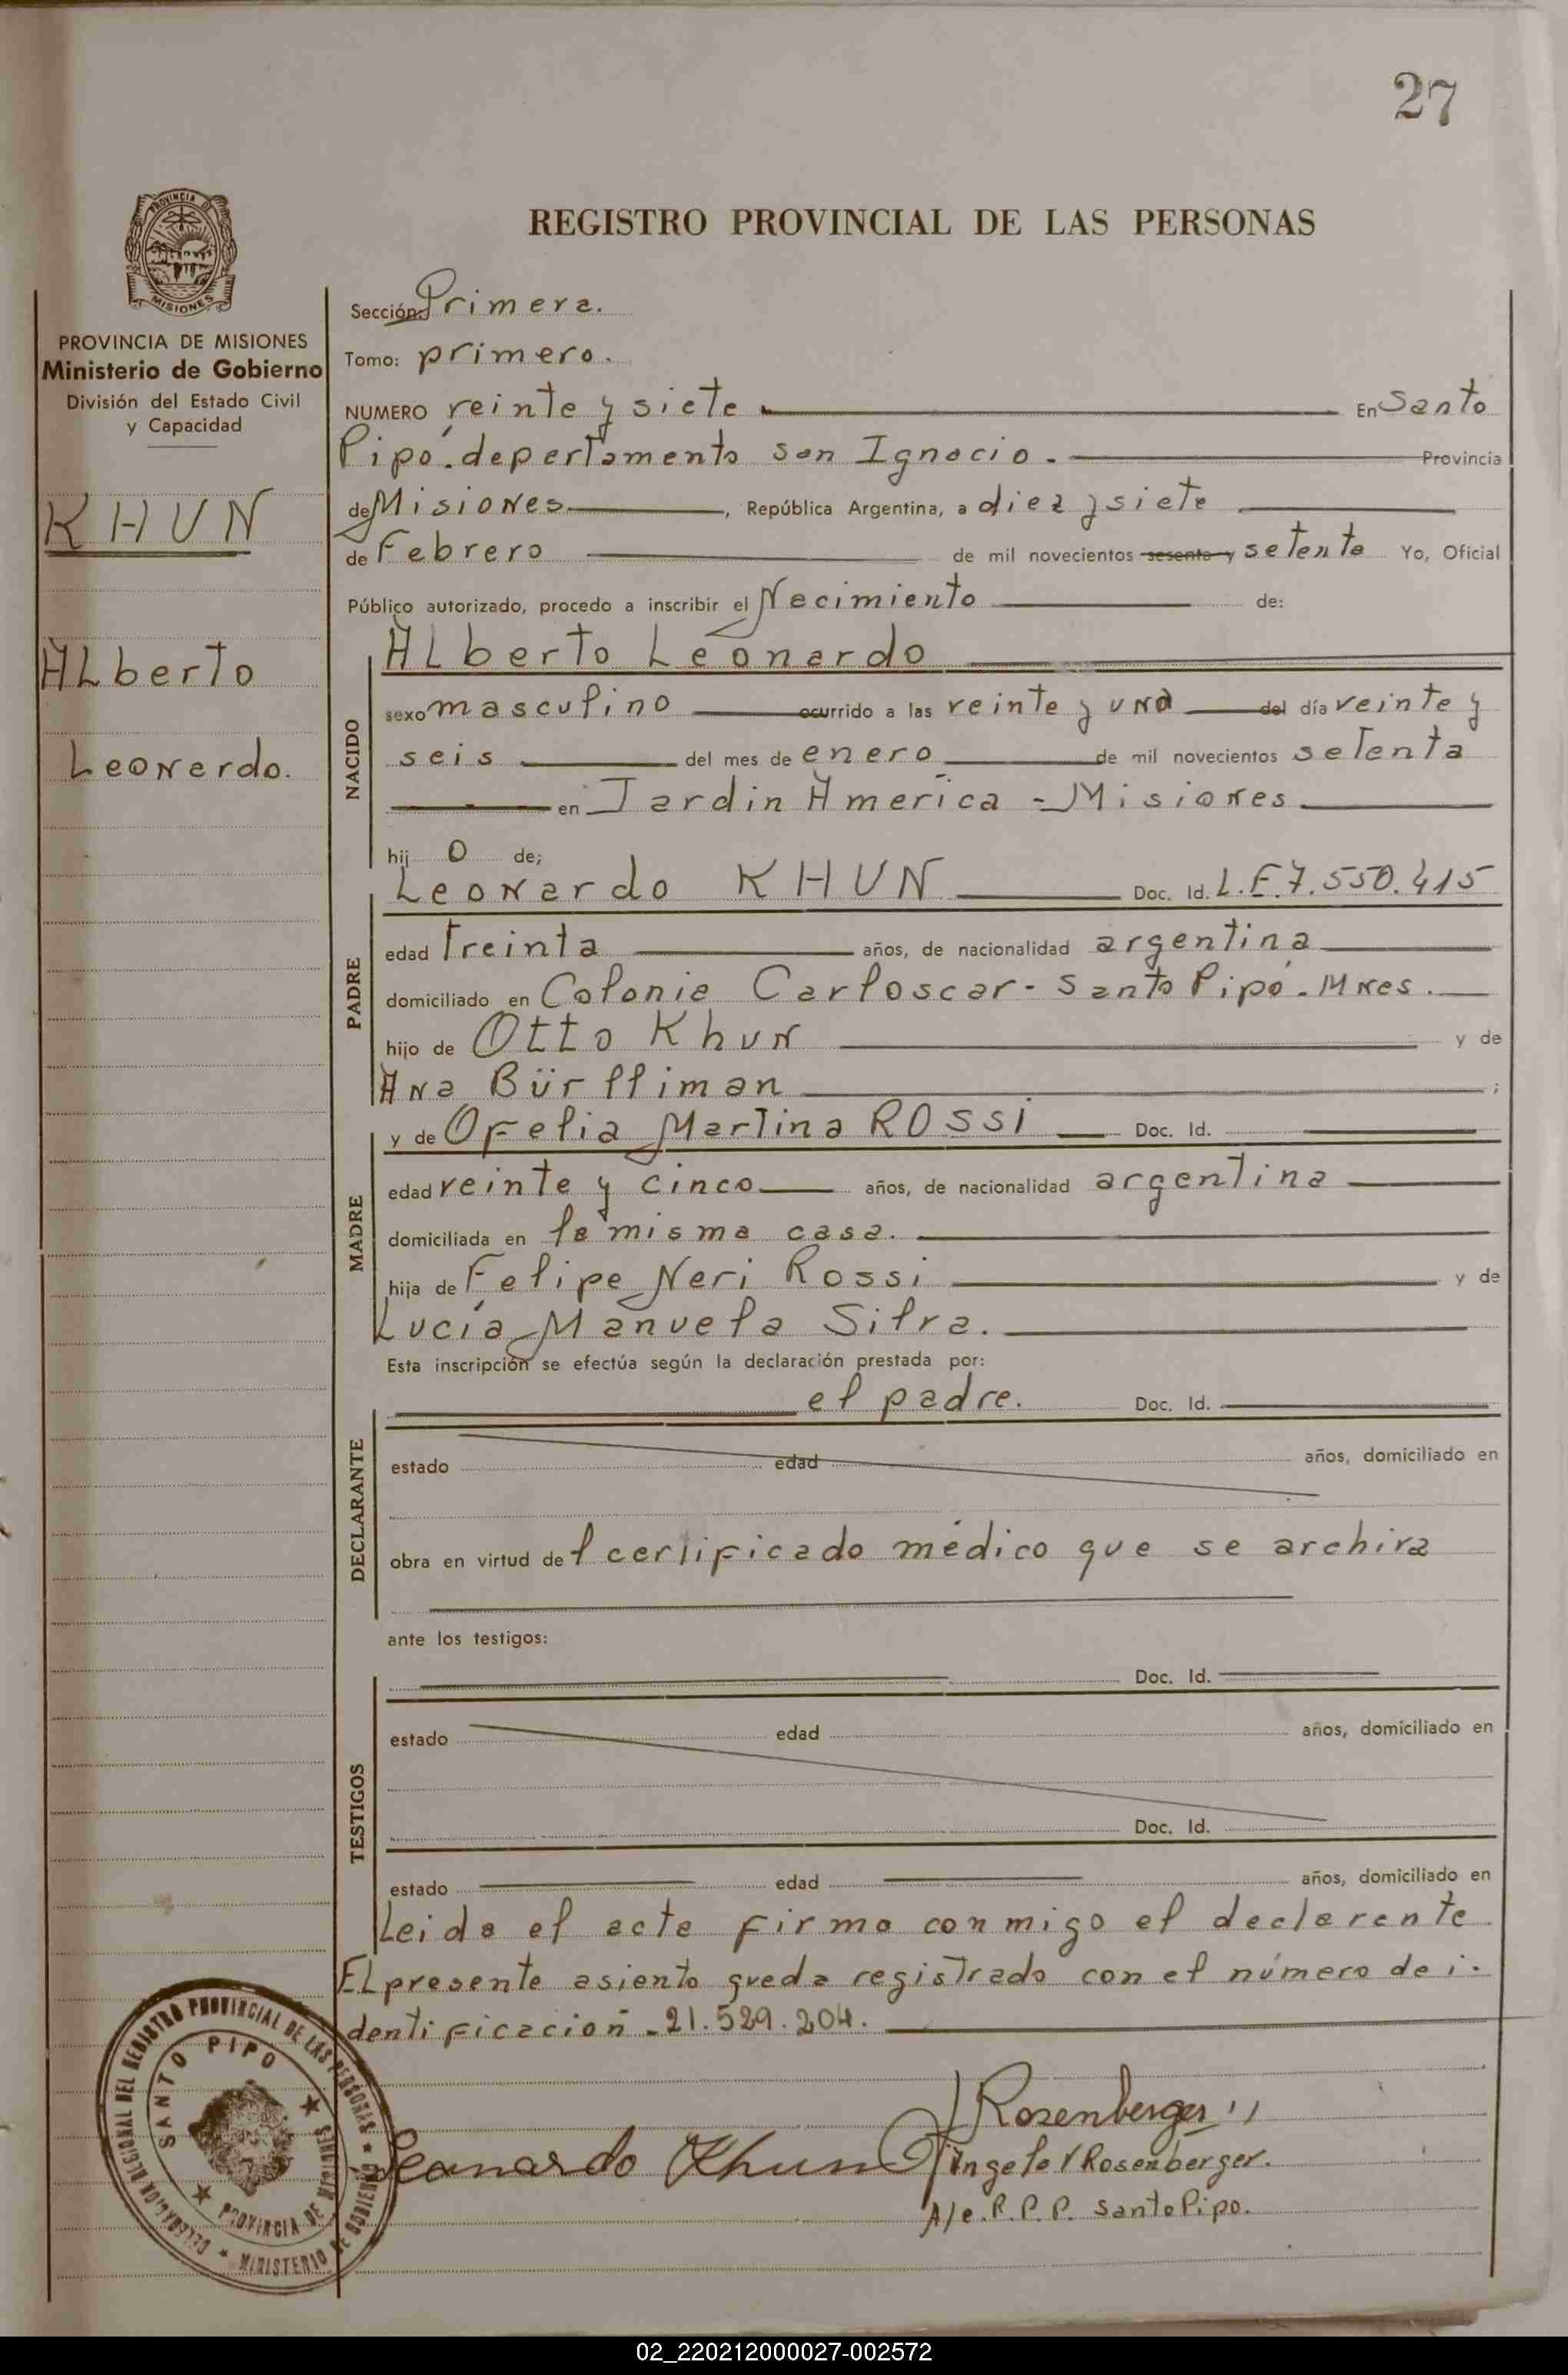 27
PROVINCIA DE
MISIONES
REGISTRO PROVINCIAL DE LAS PERSONAS
PROVINCIA DE MISIONES
Ministerio de Gobierno
División del Estado Civil
y Capacidad
KHUN
Alberto
Leonardo.
Sección: Primera.
Tomo: primero.
NUMERO veinte y siete En Santo
Pipó. departamento san Ignacio. Provincia
de Misiones, República Argentina, a diez y siete
de Febrero de mil novecientos sesenta y setenta Yo, Oficial
Público autorizado, procedo a inscribir el Nacimiento de:
NACIDO
Alberto Leonardo
sexo masculino ocurrido a las veinte y una del día veinte y
seis del mes de enero de mil novecientos setenta
en Jardin América - Misiones
hij o de;
PADRE
Leonardo KHUN Doc. Id. L.E.7.550.415
edad treinta años, de nacionalidad argentina
domiciliado en Colonia Carloscar - Santo Pipó - Mnes.
hijo de Otto Khun y de
Ana Bürlliman ;
MADRE
y de Ofelia Martina ROSSI Doc. Id.
edad veinte y cinco años, de nacionalidad argentina
domiciliada en la misma casa.
hija de Felipe Neri Rossi y de
Lucía Manuela Silva.
Esta inscripción se efectúa según la declaración prestada por:
DECLARANTE
el padre. Doc. Id.
estado edad años, domiciliado en
obra en virtud del certificado médico que se archiva
ante los testigos:
TESTIGOS
Doc. Id.
estado edad años, domiciliado en
Doc. Id.
estado edad años, domiciliado en
Leida el acta firma conmigo el declarante
El presente asiento queda registrado con el número de i-
dentificación - 21.529.204.
DELEGACION REGIONAL DEL REGISTRO PROVINCIAL DE LAS PERSONAS
MINISTERIO DE GOBIERNO
SANTO PIPO
PROVINCIA DE MISIONES
Leonardo Khun
Rosenberger
Rosenberger.
A/c. R.P.P. Santo Pipo.
02_220212000027-002572